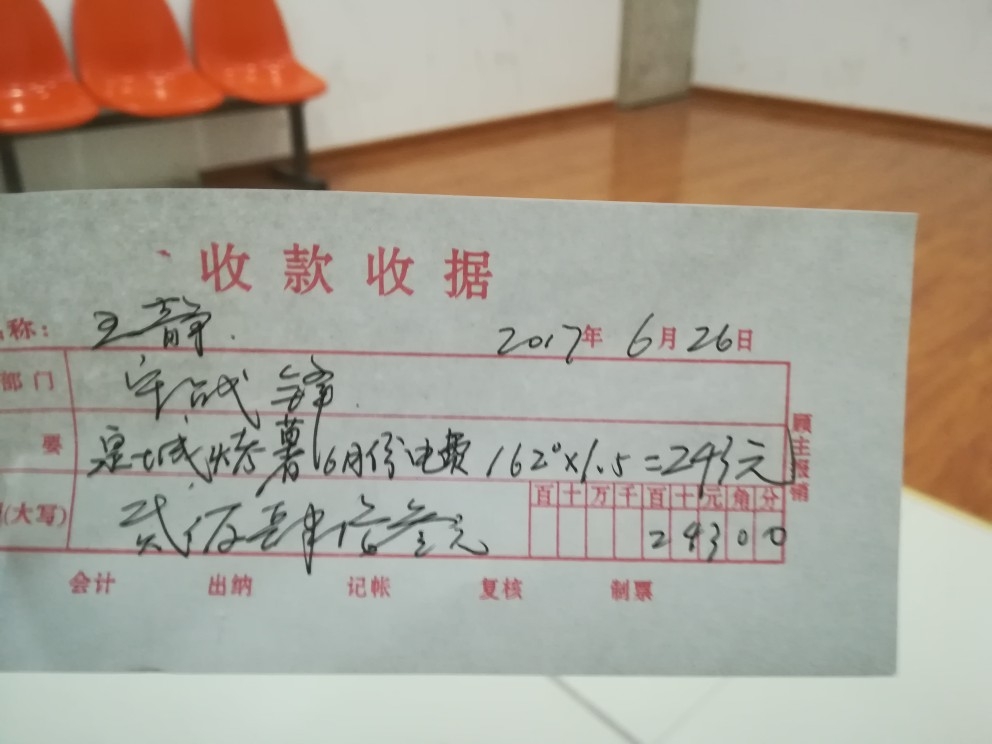 收款收据
称：王静. 2017年6月26日
部门
要 皇城烤薯6月份电费 162°×1.5=243元
(大写) 贰佰肆拾叁元
百十万千百十元角分
24300
顾主报销
会计 出纳 记帐 复核 制票